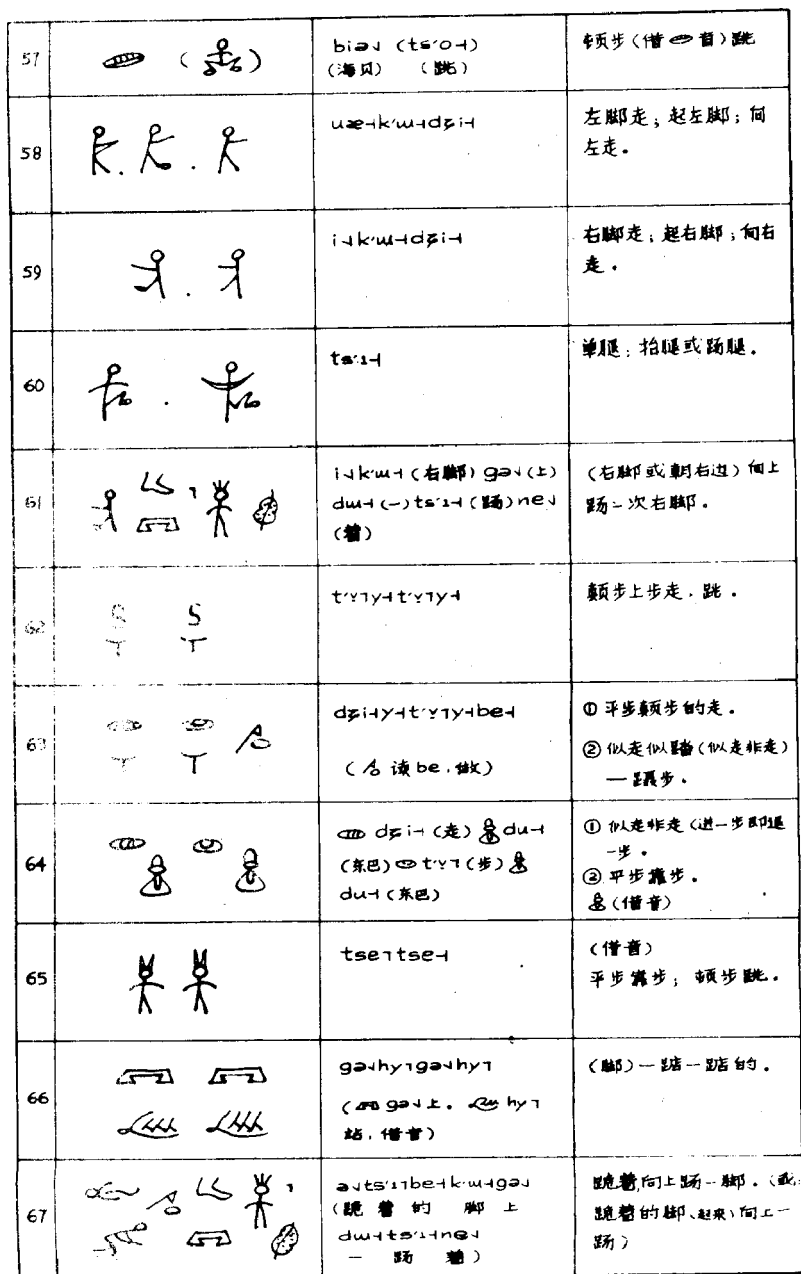 57
biə˩ (ts'o˧)
(海贝) (跳)
顿步(借 音)跳
58
uæ˧k'ɯ˧dʐi˧
左脚走；起左脚；向
左走。
59
i˩k'ɯ˧dʐi˧
右脚走；起右脚；向右
走。
60
ts'ɿ˧
单腿；抬腿或踢腿。
61
i˩k'ɯ˧(右脚)gə˩(上)
dɯ˧(一)ts'ɿ˧(踢)ne˩
(着)
(右脚或朝右边)向上
踢一次右脚。
62
t'ɤ˥y˧t'ɤ˥y˧
颠步上步走，跳。
63
dʐi˧y˧t'ɤ˥y˧be˧
( 读be，做)
① 平步颠步的走。
② 似走似踏(似走非走)
— 步。
64
dʐi˧(走) du˧
(东巴) t'ɤ˥(步)
du˧(东巴)
① 似走非走(进一步即退
一步。
② 平步靠步。
(借音)
65
tse˥tse˧
(借音)
平步靠步；顿步跳。
66
gə˩hy˥gə˩hy˥
( gə˩上。 hy˥
站，借音)
(脚)一踮一踮的。
67
ə˩ts'ɿ˥be˧k'ɯ˧gə˩
(跪着的 脚 上
dɯ˧ts'ɿ˧ne˩
一 踢 着)
跪着向上踢一脚。(或:
跪着的脚(起来)向上一
踢)